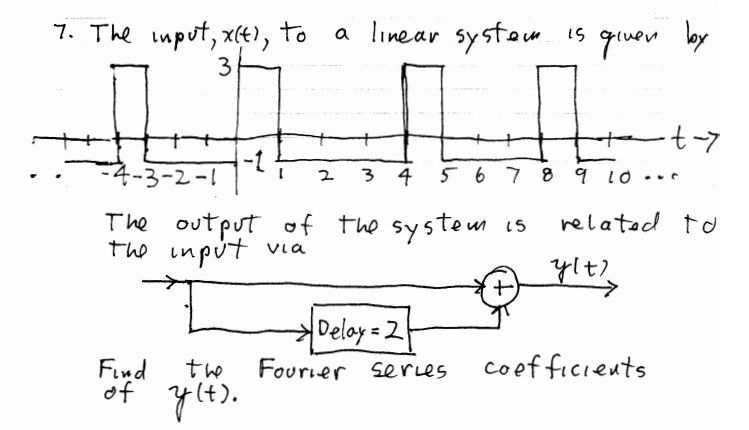 7. The input, x(t), to a linear system is given by
3
-1
t→
.. -4 -3 -2 -1 1 2 3 4 5 6 7 8 9 10 ...
The output of the system is related to
the input via
y(t)
+
Delay = 2
Find the Fourier series coefficients
of y(t).